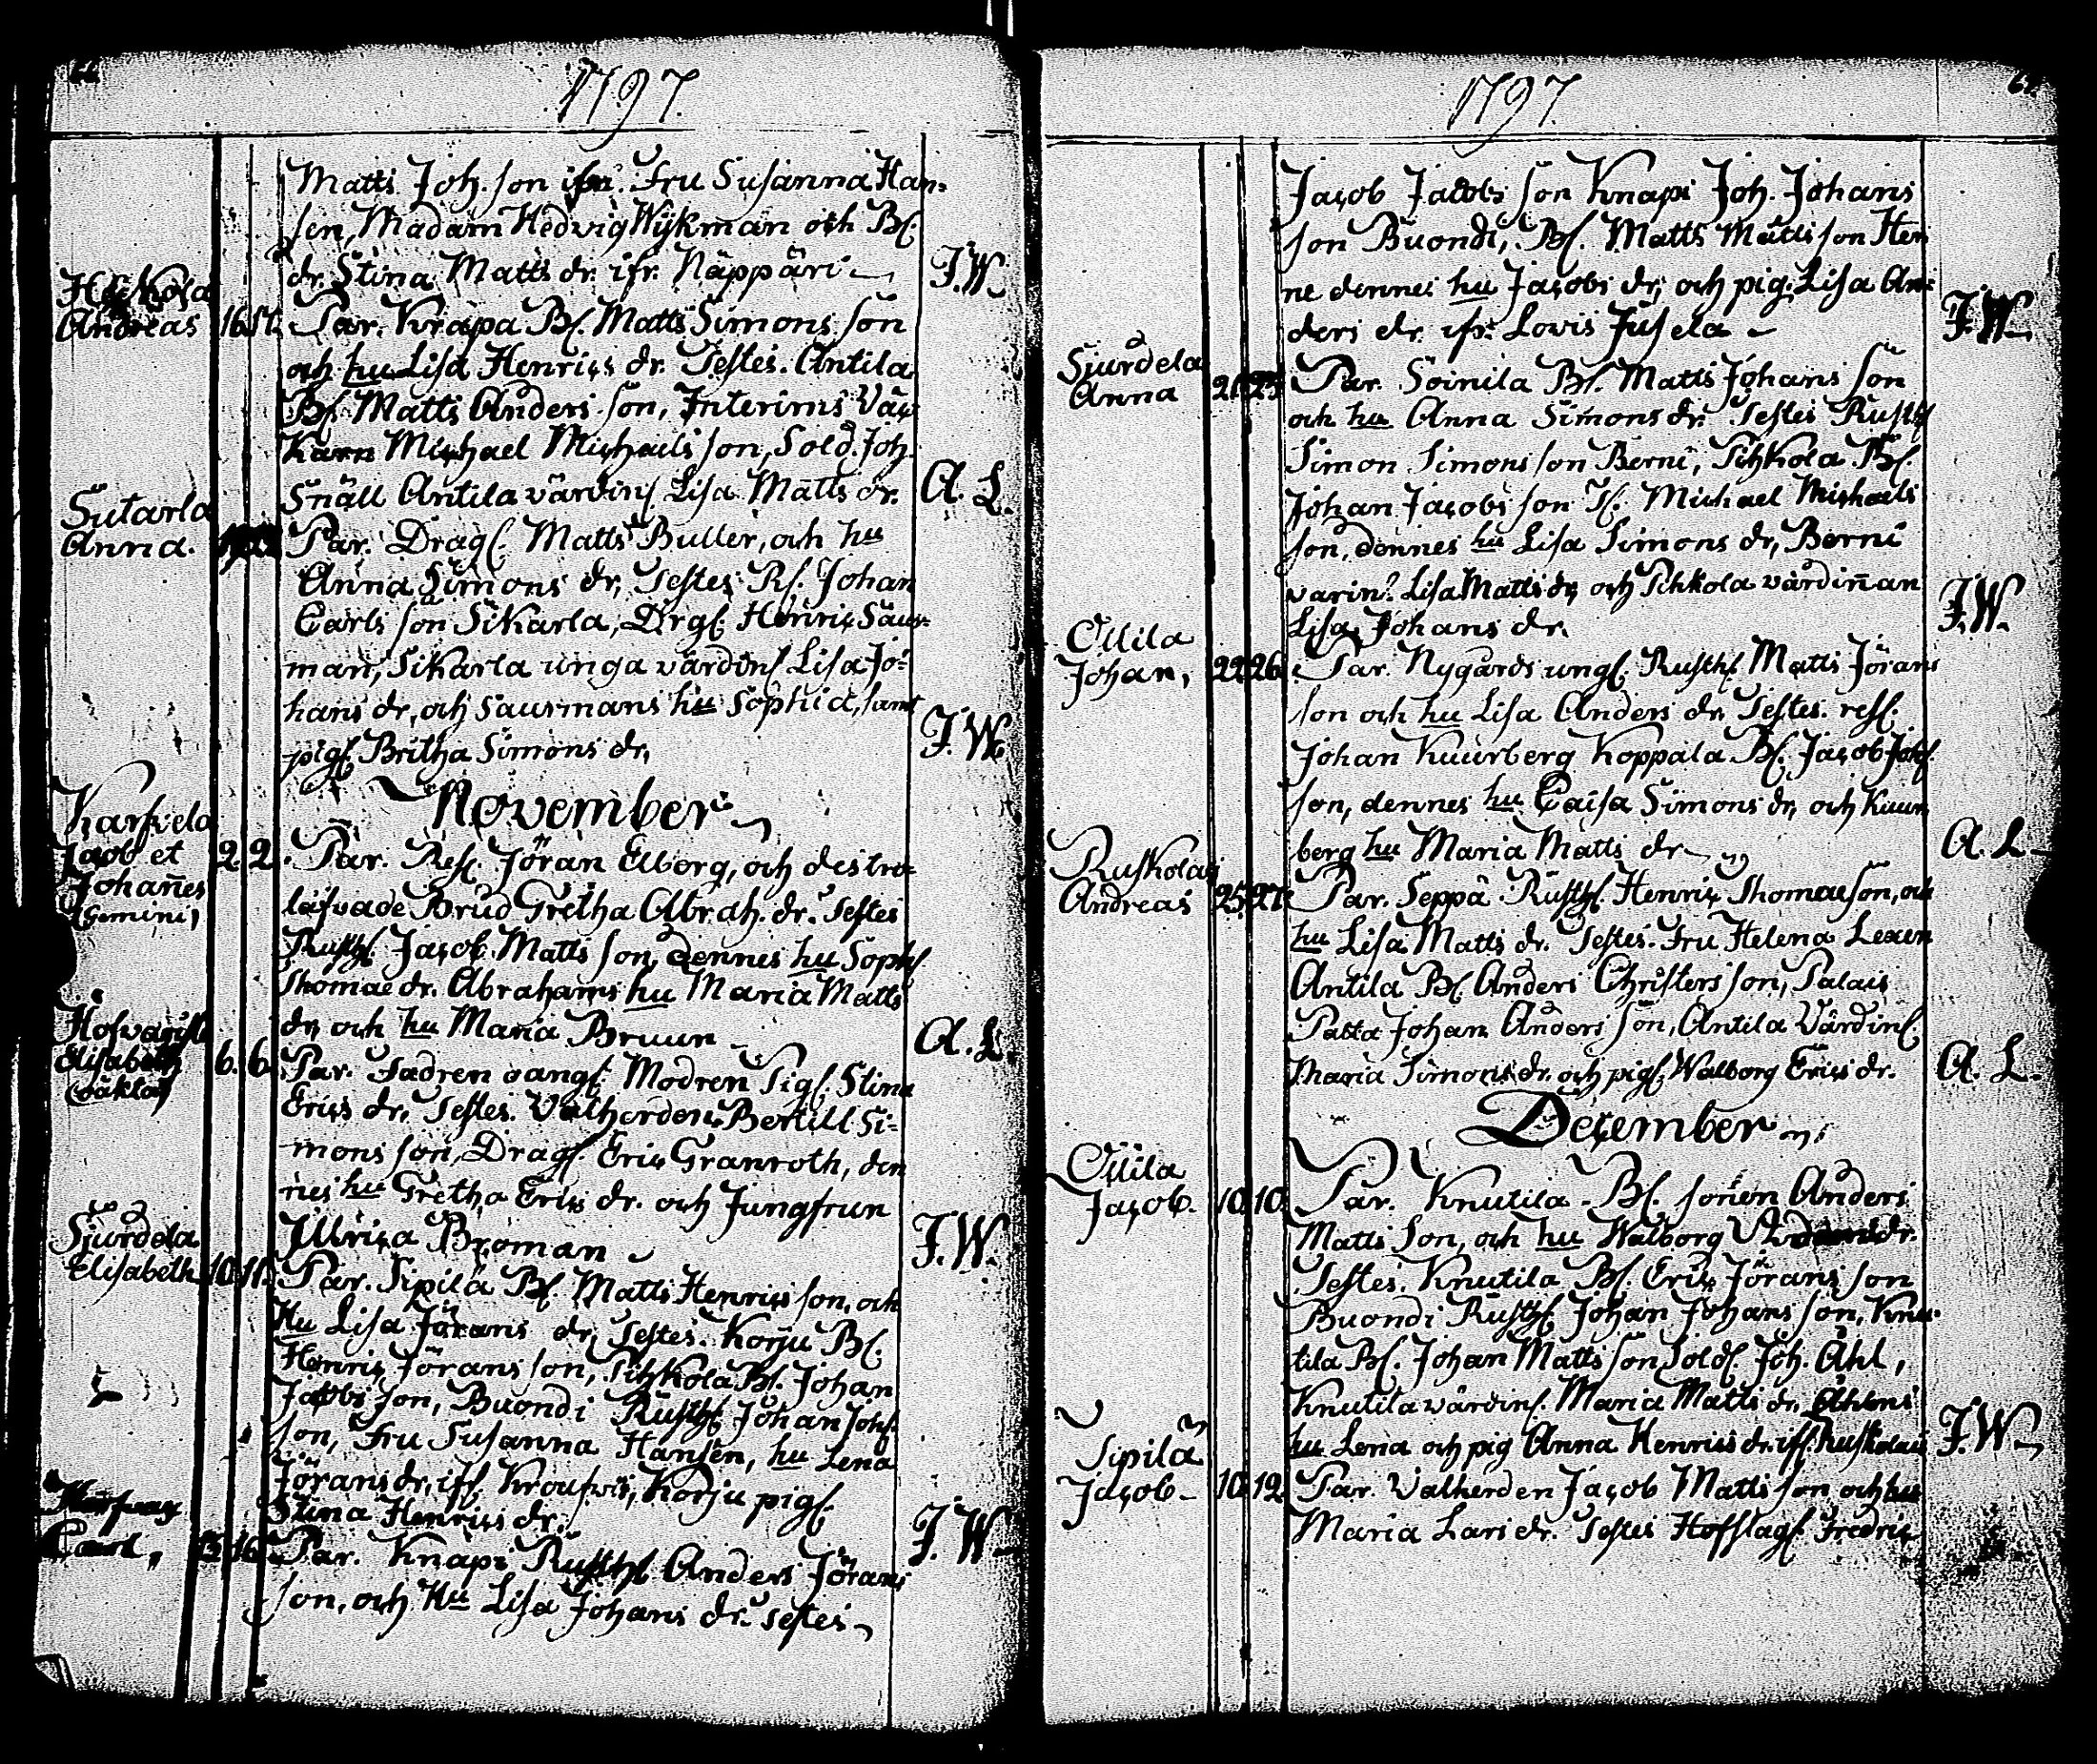 1797.
Matts Joh. son ifr. Fru Susanna Han-
sen, Madam Hedvig Wijkman och Bf.
dr. Stina Matts dr. ifr. Näppäri
J.W.
Heikola
Andreas 16. 17. Par. Krapa Bf. Matts Simons son
och hu Lisa Henrics dr. Testes. Antila
Bf. Matts Anders son, Interims Väc
Karn Michael Michaels son, Sold. Joh.
Snäll Antila värdinf. Lisa Matts dr. A. L.
Sutarla
Anna. Par. Dragf. Matts Buller, och hu
Anna Simons dr, Testes Rf. Johan
Carls son Sikarla, Drgf. Henric Saur-
man, Sikarla unga värdinf. Lisa Jo-
hans dr, och Saurmans hu Sophia, samt
pigf. Britha Simons dr, J.W.
November
Karfvela
Jacob et
Johannes
Gemini, 2. 2. Par. Resf. Jöran Elberg, och des tro-
läfvade Brud Gretha Abrah. dr. Testes
Rusthf. Jacob Matts son, dennes hu Soph.
Thomae dr. Abrahams hu Maria Matts
dr, och hu Maria Bruun A. L.
Elisabeth
oäkta 6. 6. Par. Fadren oangf. Modren Pigf. Stina
Erics dr, Testes. Valherden Bertill Si-
mons son, Dragf. Eric Granroth, den
nes hu Gretha Erics dr. och Jungfrun
Ulrica Broman J.W.
Sjurdela
Elisabeth 10. 11. Par. Sipilä Bf. Matts Henrics son, och
Hu Lisa Jörans dr, Testes. Korju Bf.
Henric Jörans son, Pihkola Bf. Johan
Jacobs son, Buondi Rusthf. Johan Johs.
son, Fru Susanna Hansen, hu Lena
Jörans dr, iff. Korju pigf.
Stina Henrics dr. J.W.
Carl, 16. Par. Knapi Rusthf. Anders Jörans
son, och Hu Lisa Johans dr. Testes
1797.
Jacob Jacobs son Knapi Joh. Johans
son Buondi, Bf. Matts Matts son Hen
ne dennes hu Jacobs dr, och pig. Lisa An-
ders dr. ifr. Lovis Jusela J.W.
Sjurdela
Anna 21. 25. Par. Soinila Bf. Matts Johans son
och hu Anna Simons dr. Testes Rusthf
Simon Simons son Berni, Pihkola Bf.
Johan Jacobs son If. Michael Michaels
son, dennes hu Lisa Simons dr, Berni
värin. Lisa Matts dr, och Pihkola värdinan
Lisa Johans dr. J.W.
Ollila
Johan, 22. 26. Par. Nygårds ungf. Rusthf. Matts Jörans
son och hu Lisa Anders dr, Testes. resf.
Johan Kuurberg Koppala Bf. Jacob Johs.
son, dennes hu Caisa Simons dr, och Kuur
berg hu Maria Matts dr A. L.
Ruskola
Andreas 25. 27. Par. Seppä Rusthf. Henric Thomae son, och
hu Lisa Matts dr. Testes. Fru Helena Lexen
Antila Bf. Anders Christers son, Palais
Patta Johan Anders son, Antila Värdinf.
Maria Simons dr. och pigf. Walborg Erics dr. A. L.
December
Ollila
Jacob. 10. 10. Par. Knutila Bf. sonen Anders
Matts Son, och hu Walborg dr.
Testes. Knutila Bf. Eric Jörans son
Buondi Rusthf. Johan Johans son, Knu-
tila Bf. Johan Matts son, Soldf. Joh. Åhl,
Knutila värdinf. Maria Matts dr,
hu Lena och pig Anna Henrics dr. iff. Ruskola J.W.
Sipilä
Jacob 10. 12. Par. Valherden Jacob Matts son och hu
Maria Lars dr. Testes Hofslagf. Fredric